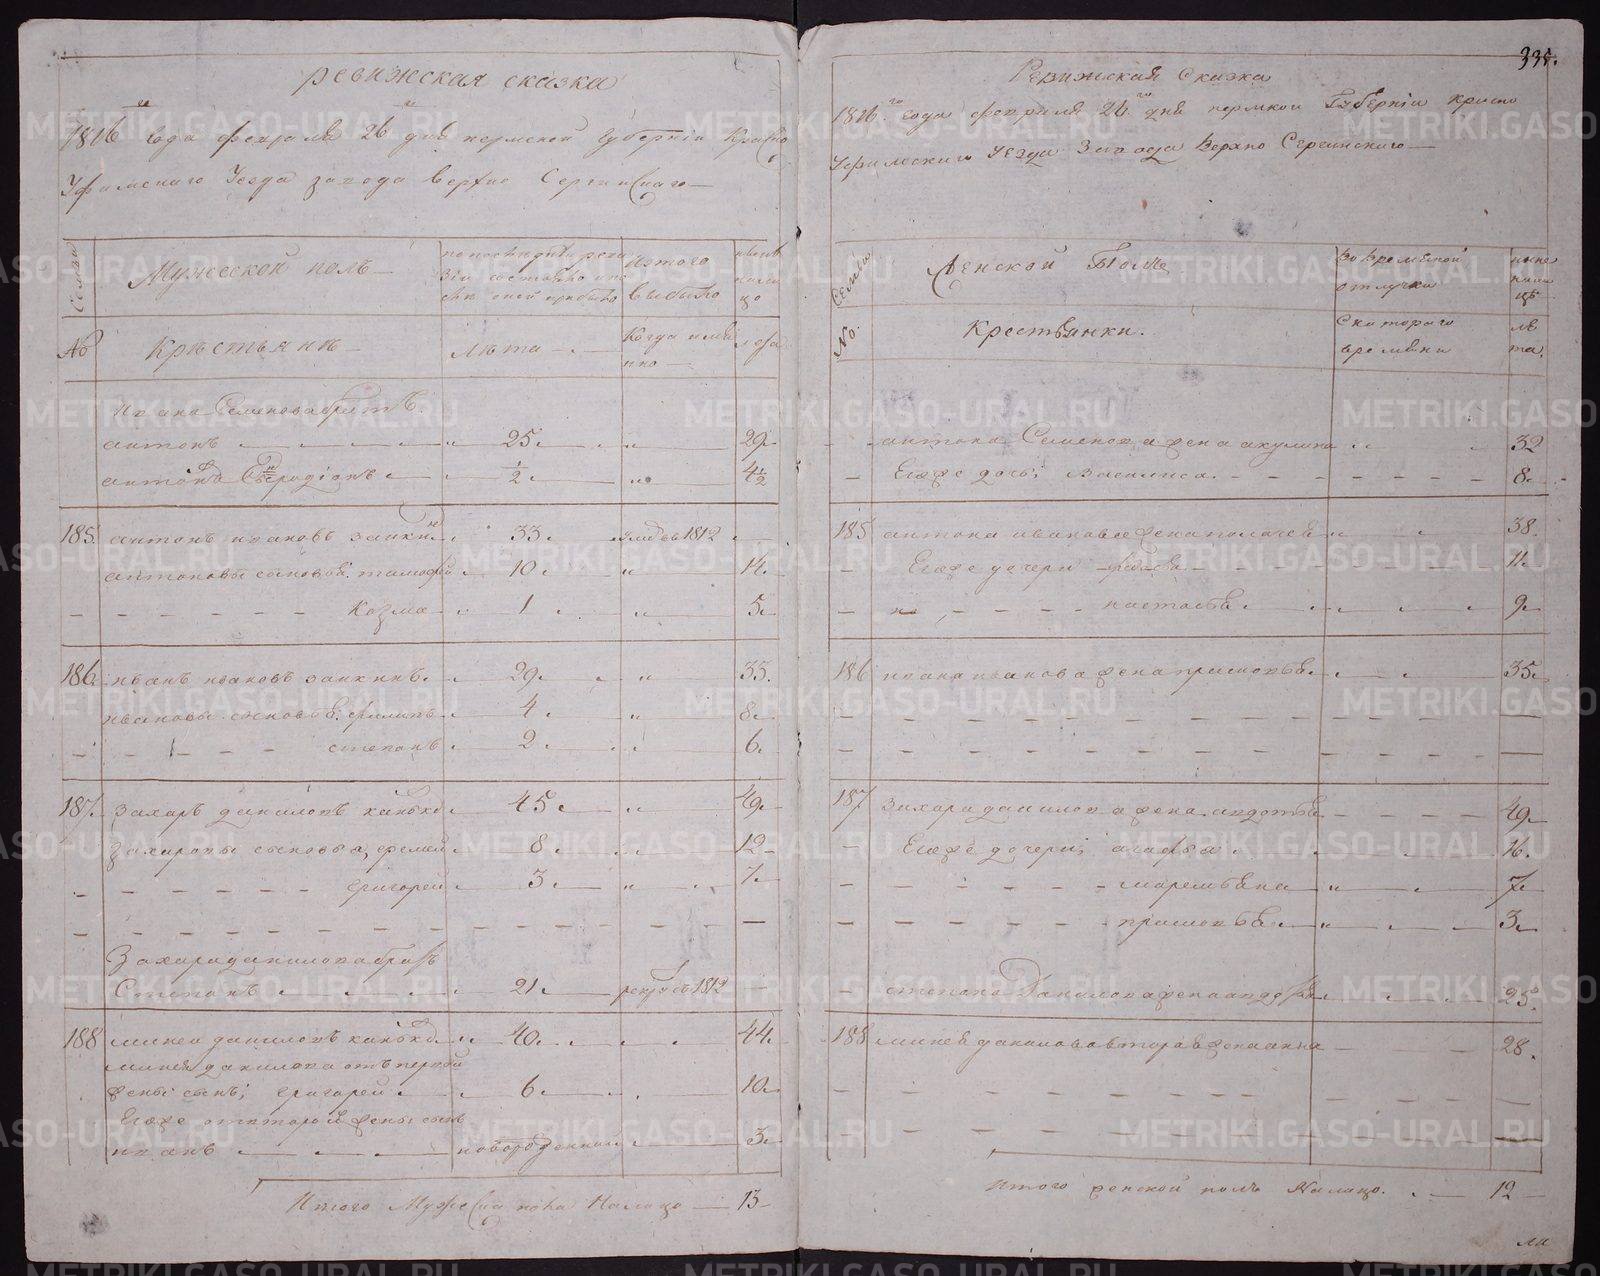 ревижская сказка
1816 года февраля 26 дня пермской губернии Красно
Уфимскаго Уезда завода верхно Сергинскаго
Семьи
Мужеской полъ
Изтого
выбыло
№
Крѣстьянѣ
лѣта
Когда имя
нно
лѣта
Ивана Семенова братъ
антонъ 25 29
антона сынъ родионъ 1/2 4 1/2
185 антонъ ивановъ заикинъ 33 1812
антоновы сыновья: тимофей 10 14
Козма 1 5
186 иванъ ивановъ заикинъ 29 33
ивановы сыновья: филипъ 4 8
степанъ 2 6
187 захаръ даниловъ 45 49
Захаровы сыновья, еремей 8 12
григорей 3 7
Захара данилова братъ
Степанъ 21 рекру въ 1812
188 миней даниловъ 40 44
минея данилова отъ первой
жены сынъ; григорей 6 10
Егоже отвторой жены сынъ
иванъ новорожденной 3
Итого Мужеска пола Налицо 13
335.
Ревижская Сказка
1816 года февраля 26 дня пермкой Губернии красно
Уфимскаго Уезда Завода Верхно Сергинскаго
Семьи
Женской Полъ
Вовремянной
отлучке
ныне
нали
цѣ
№
Крестьянки.
Скотораго
времяни
лѣ
та.
антона Семенова жена акулина 32
Егоже дочь: василиса 8
185 антона иванова жена 38
Егоже дочери 11
настасья 9
186 ивана иванова жена прасковья 35
187 захара данилова жена авдотья 49
Егоже дочери, агафья 16
маремьяна 7
прасковья 3
степана Данилова жена авдотья 25
188 минея данилова вторая жена анна 28
Итого женской полъ Налицо 12
METRIKI.GASO-URAL.RU